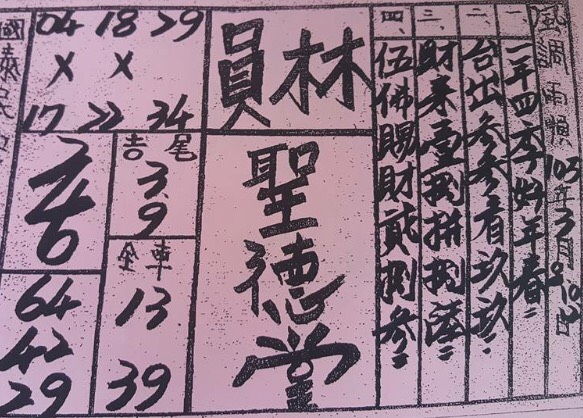 風調雨順 103年3月
一、一年四季好年春
二、台出参参看玖玖
三、財來壹捌拼捌
四、伍佛賜財貳捌参
員林
聖德堂
04 18 29
X X
17 22 34
吉尾
3
9
全車
13
39
64
42
29